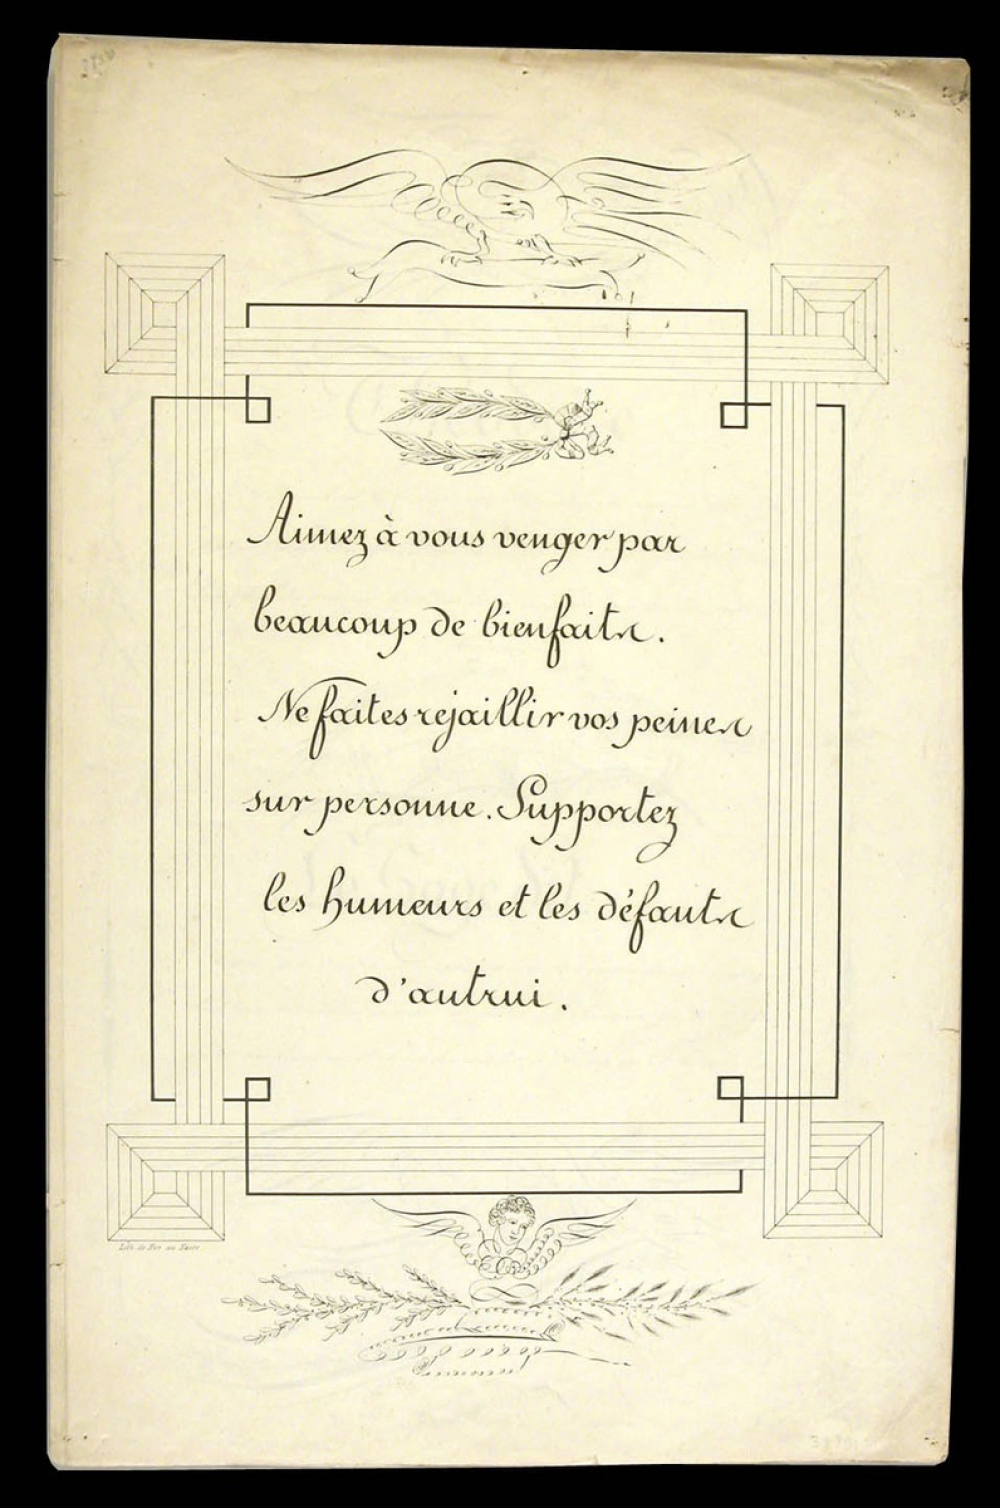 Aimez à vous venger par
beaucoup de bienfaits.
Ne faites rejaillir vos peines
sur personne. Supportez
les humeurs et les défauts
d'autrui.
Lith. de